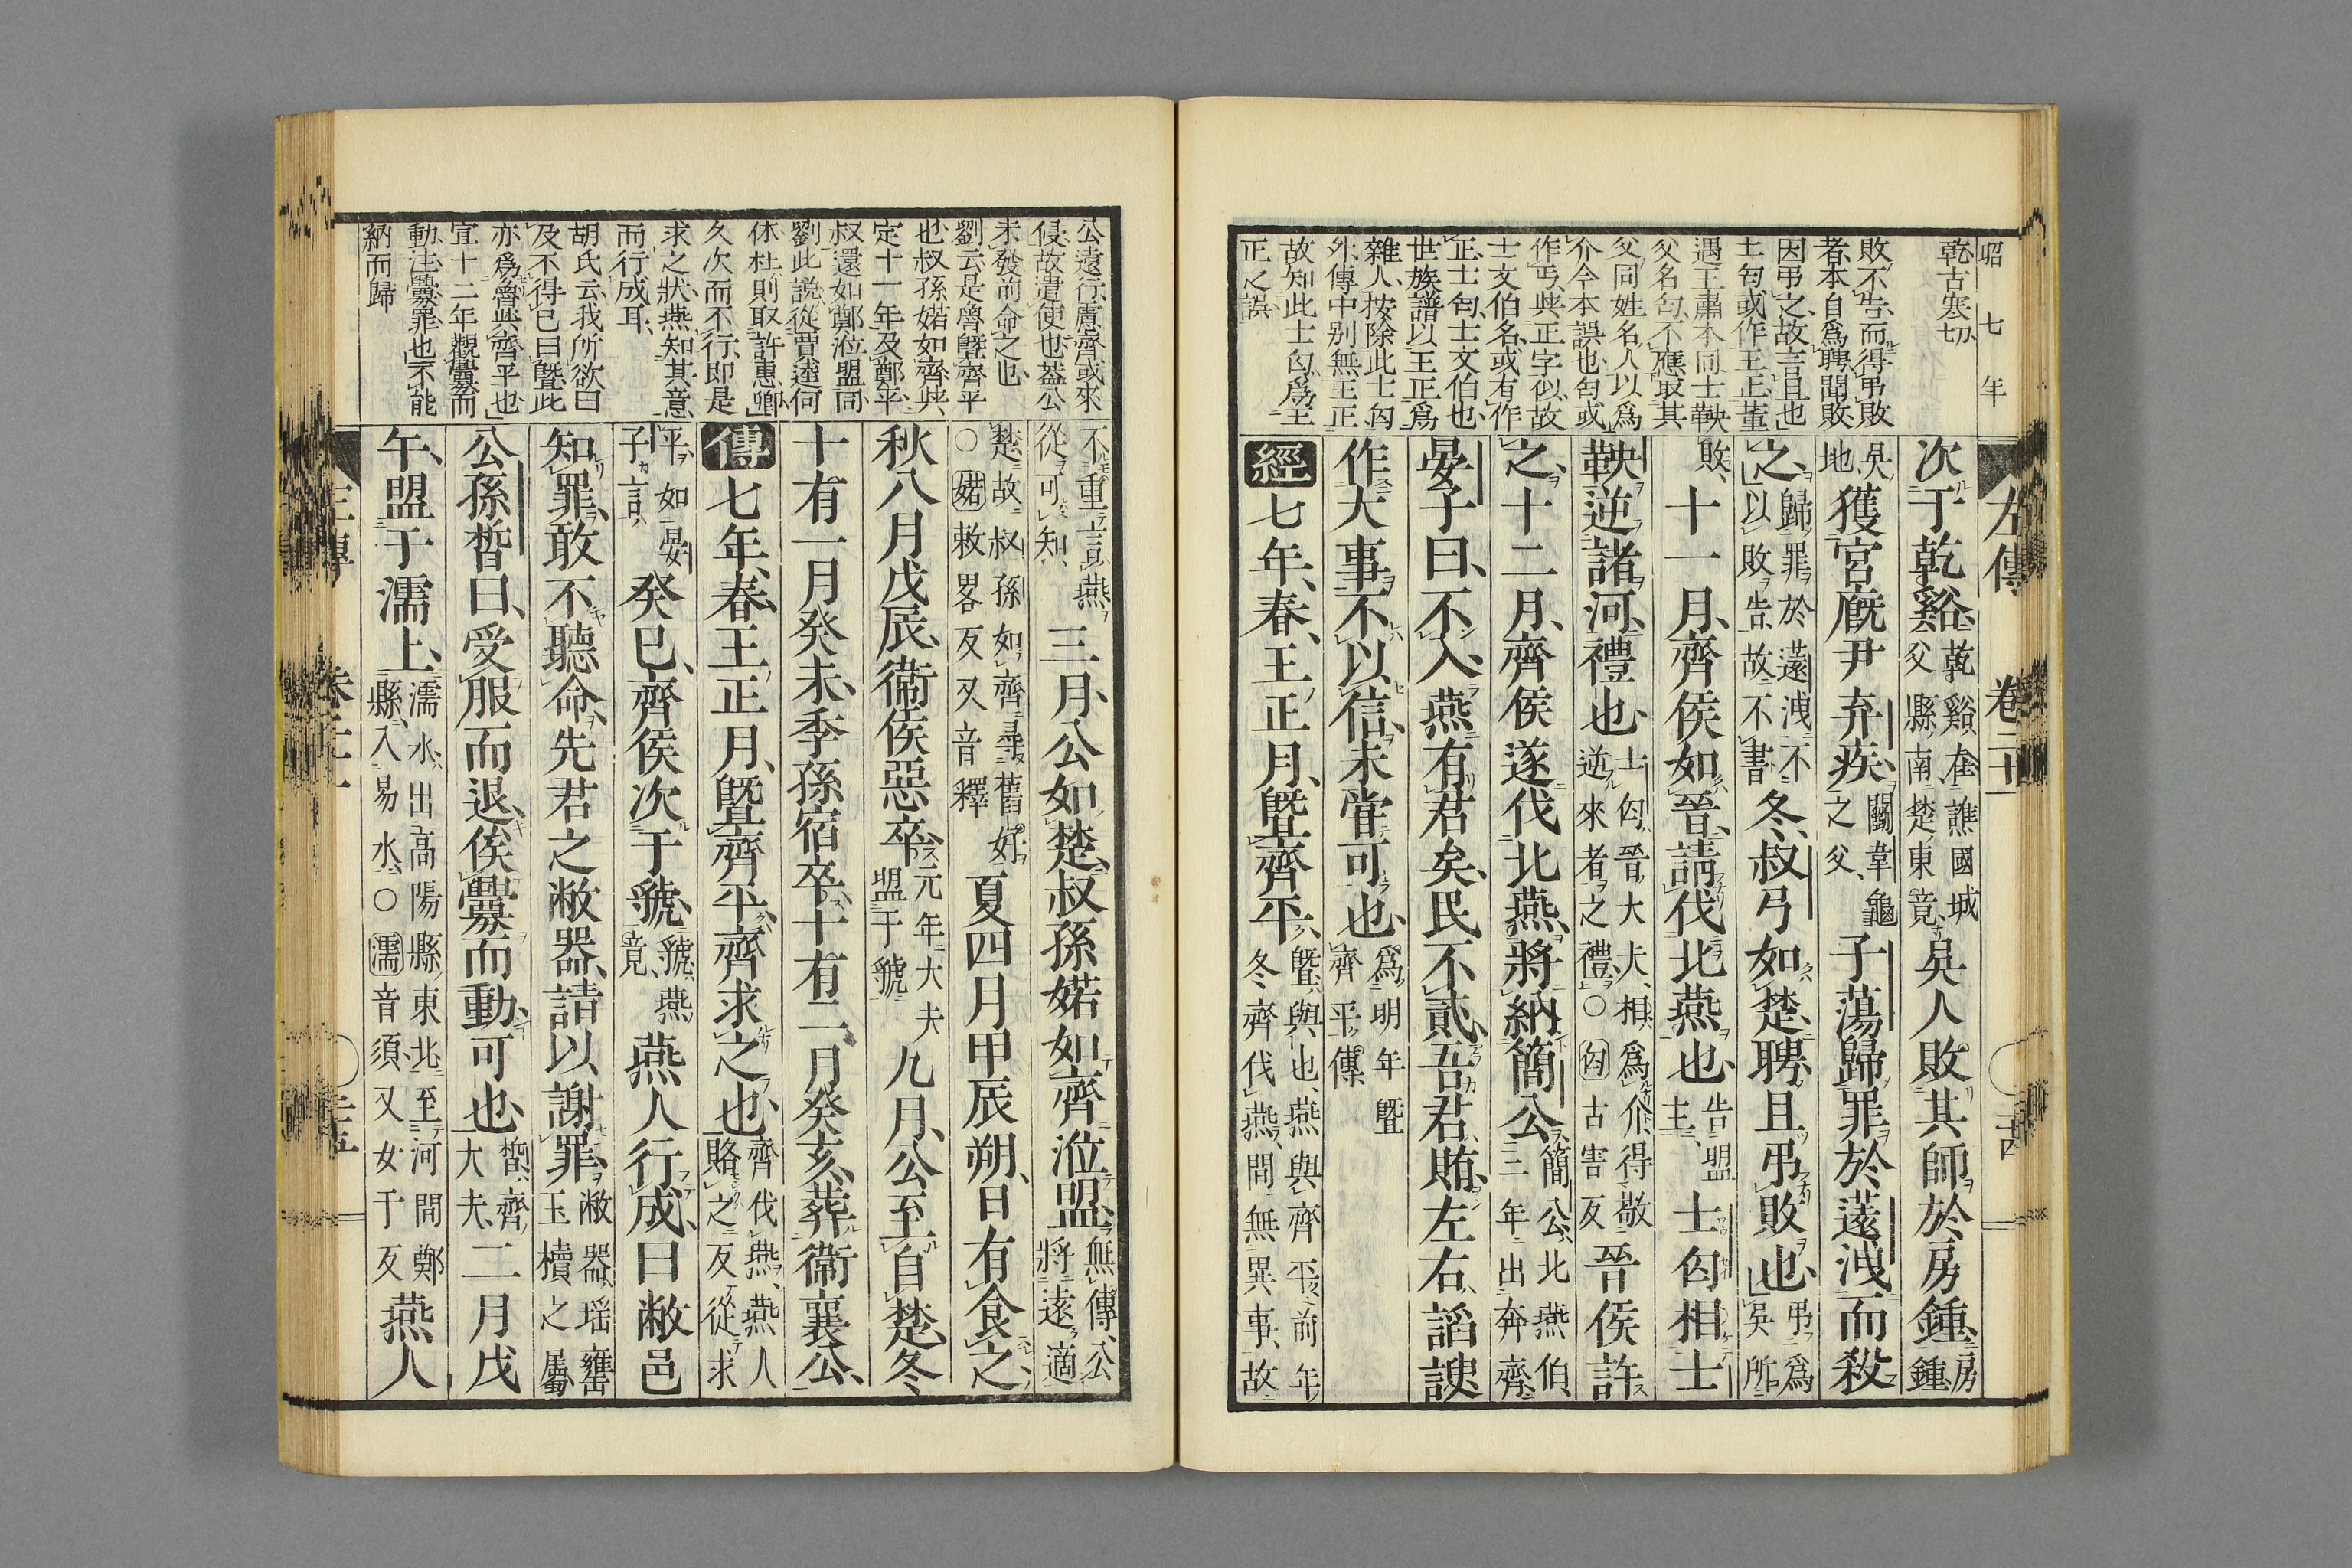 昭七年
乾古寒切
敗不告而得弔敗
者本自爲聘聞敗
因弔之故言且也
士匄或作王正董
遇王肅本同士鞅
父名匄不應取其
父同姓名人以爲
介今本誤也匄或
作丐與正字似故
士文伯名或有作
正士匄士文伯也
世族譜以王正爲
雜人按除此士匄
外傳中別無王正
故知此士匄爲王
正之誤
左傳 卷二十一 二十四
次于乾谿乾谿在譙國城父縣南楚東竟吳人敗其師於房鍾房鍾
吳地獲宮廄尹弃疾鬬韋龜之父子蕩歸罪於薳洩而殺
之歸罪於薳洩不以敗告故不書冬叔弓如楚聘且弔敗也弔爲吳所
敗十一月齊侯如晉請伐北燕也告盟主士匄相士
鞅逆諸河禮也士匄晉大夫相爲介得敬逆來者之禮○匄古害反晉侯許
之十二月齊侯遂伐北燕將納簡公簡公北燕伯三年出奔齊
晏子曰不入燕有君矣民不貳吾君賄左右諂諛
作大事不以信未嘗可也爲明年暨齊平傳
經七年春王正月暨齊平暨與也燕與齊平前年冬齊伐燕間無異事故
公遠行慮齊或來
侵故遣使也蓋公
未發前命之也
劉云是魯暨齊平
也叔孫婼如齊與
定十一年及鄭平
叔還如鄭涖盟同
劉此說從賈逵何
休杜則取許惠卿
久次而不行即是
求之狀燕知其意
而行成耳
胡氏云我所欲曰
及不得已曰暨此
亦爲魯與齊平也
宣十二年觀釁而
動注釁罪也不能
納而歸
不重言燕從可知三月公如楚叔孫婼如齊涖盟無傳公將遠適
楚故叔孫如齊尋舊好○婼敕畧反又音釋夏四月甲辰朔日有食之
秋八月戊辰衞侯惡卒元年大夫盟于虢九月公至自楚冬
十有一月癸未季孫宿卒十有二月癸亥葬衞襄公
傳七年春王正月暨齊平齊求之也齊伐燕燕人賂之反從求
平如晏子言癸巳齊侯次于虢虢燕竟燕人行成曰敝邑
知罪敢不聽命先君之敝器請以謝罪敝器瑶罋玉櫝之屬
公孫晳曰受服而退俟釁而動可也晳齊大夫二月戊
午盟于濡上濡水出高陽縣東北至河間鄭縣入易水○濡音須又女于反燕人